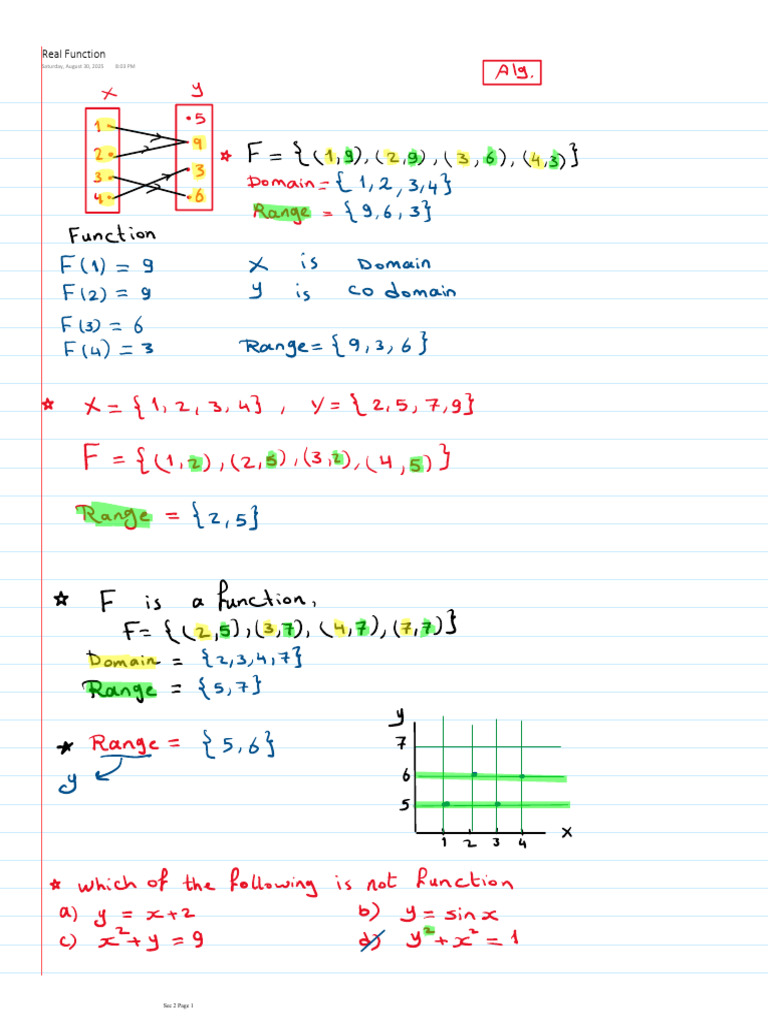 Real Function
Saturday, August 30, 2025 8:33 PM
Alg.
x y
1 2 3 4
5 9 3 6
* F = {(1,9), (2,9), (3,6), (4,3)}
Domain = {1,2,3,4}
Range = {9,6,3}
Function
F(1) = 9 X is Domain
F(2) = 9 y is co domain
F(3) = 6
F(4) = 3 Range = {9,3,6}
* X = {1,2,3,4}, Y = {2,5,7,9}
F = {(1,2), (2,5), (3,2), (4,5)}
Range = {2,5}
* F is a function,
F = {(2,5), (3,7), (4,7), (7,7)}
Domain = {2,3,4,7}
Range = {5,7}
* Range = {5,6}
y
y
7
6
5
1 2 3 4 x
* which of the following is not function
a) y = x+2 b) y = sin x
c) x² + y = 9 d) y² + x² = 1
Sec 2 Page 1